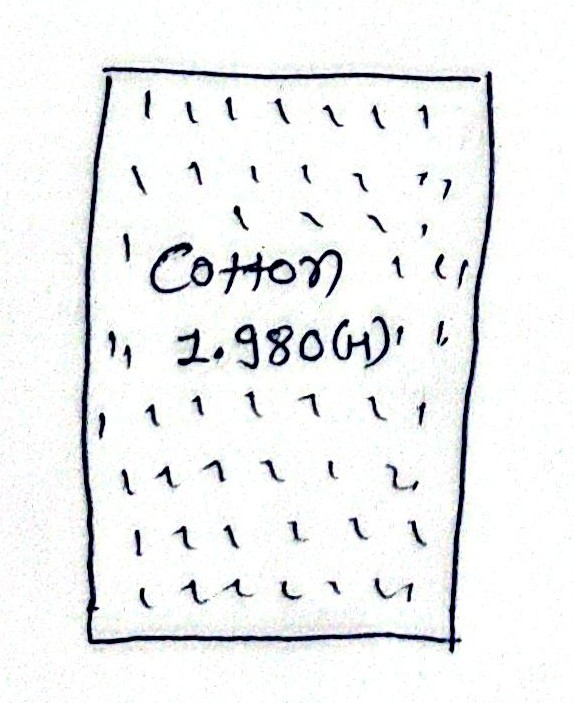 Cotton
1.980(H)